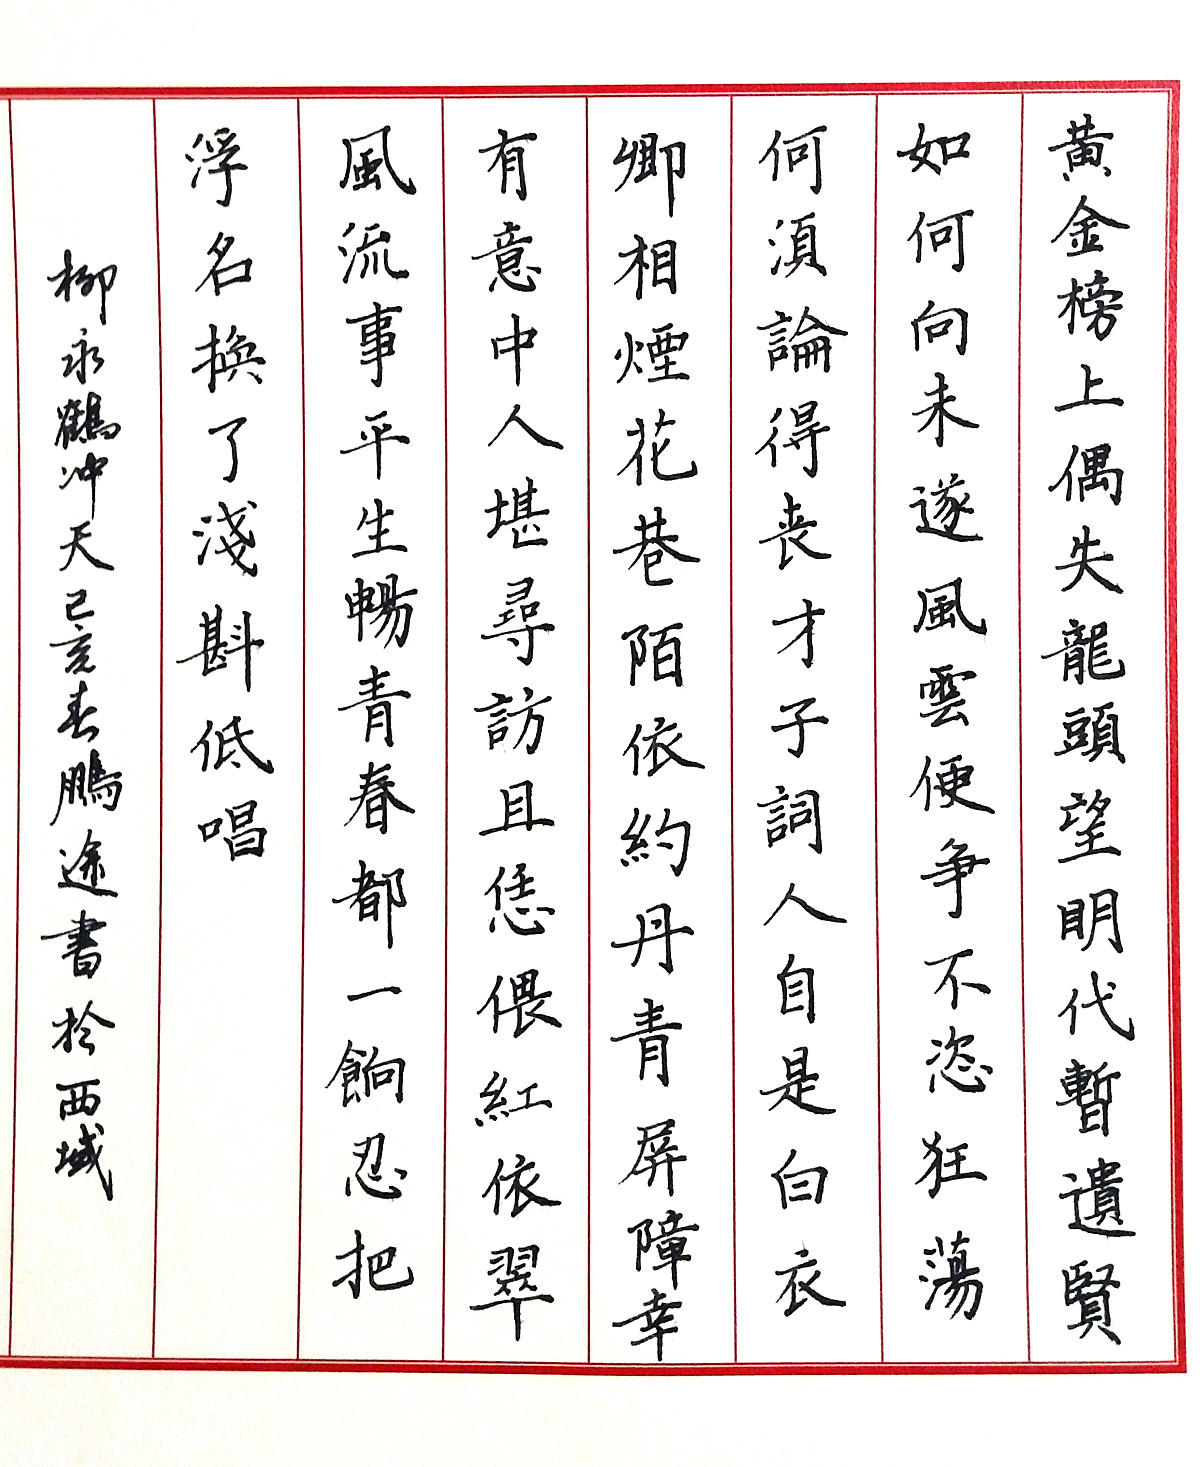 黃金榜上偶失龍頭望明代暫遺賢
如何向未遂風雲便爭不恣狂蕩
何須論得喪才子詞人自是白衣
卿相煙花巷陌依約丹青屏障幸
有意中人堪尋訪且恁偎紅依翠
風流事平生暢青春都一餉忍把
浮名換了淺斟低唱
柳永鶴冲天己亥春鵬途書於西域